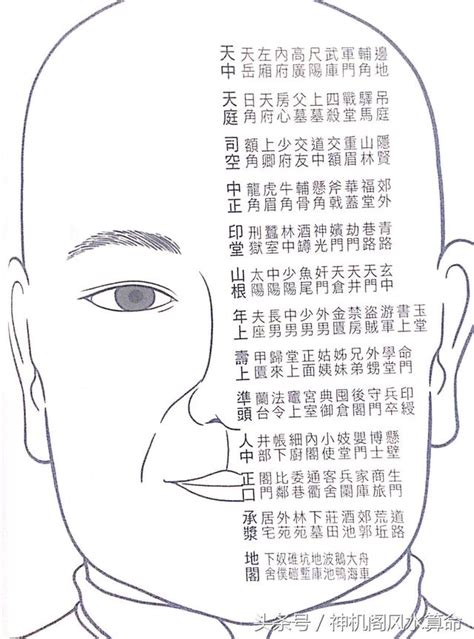 天 天左內高尺武軍輔邊
中 岳廂府廣陽庫門角地
天 日天房父上四戰驛吊
庭 角府心墓墓殺堂馬庭
司 額上少交道交重山隱
空 角卿府友中額眉林賢
中 龍虎牛輔懸斧華福郊
正 角眉角骨角戟蓋堂外
印 刑蠶林酒神嬪劫巷青
堂 獄室中罇光門門路路
山 太中少魚奸天天天玄
根 陽陽陽尾門倉井門中
年 夫長中少外金禁盜游書玉
上 座男男男男匱房賊軍上堂
壽 甲歸堂正姑姊兄外學命
上 匱來上面姨妹弟甥堂門
準 蘭法竈宮典囤後守兵印
頭 台令上室御倉閣門卒綬
人 井帳細內小妓嬰博懸
中 部下廚閣使堂門士壁
正 閣比委通客兵家商生
口 門鄰巷衢舍闌庫旅門
承 居外林下莊酒郊荒道
漿 宅苑苑墓田池郭坵路
地 下奴碓坑地波鵝大舟
閣 舍僕磑塹庫池鴨海車
头条号/神机阁风水算命